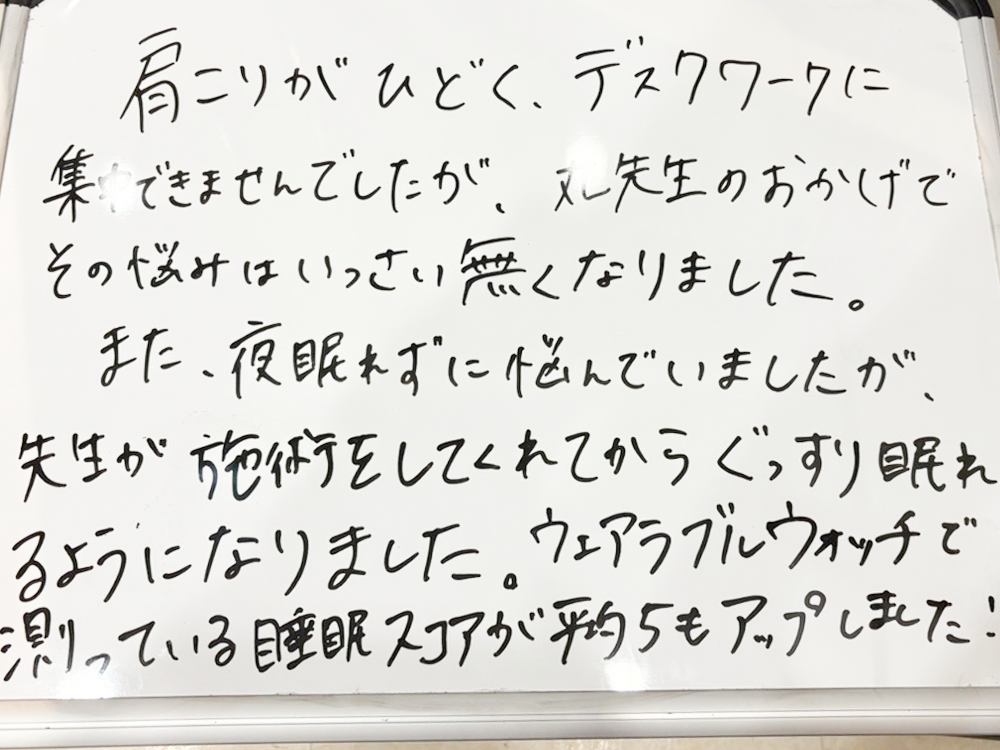 肩こりがひどく、デスクワークに
集中できませんでしたが、丸先生のおかげで
その悩みはいっさい無くなりました。
また、夜眠れずに悩んでいましたが、
先生が施術をしてくれてからぐっすり眠れ
るようになりました。ウェアラブルウォッチで
測っている睡眠スコアが平均5もアップしました!